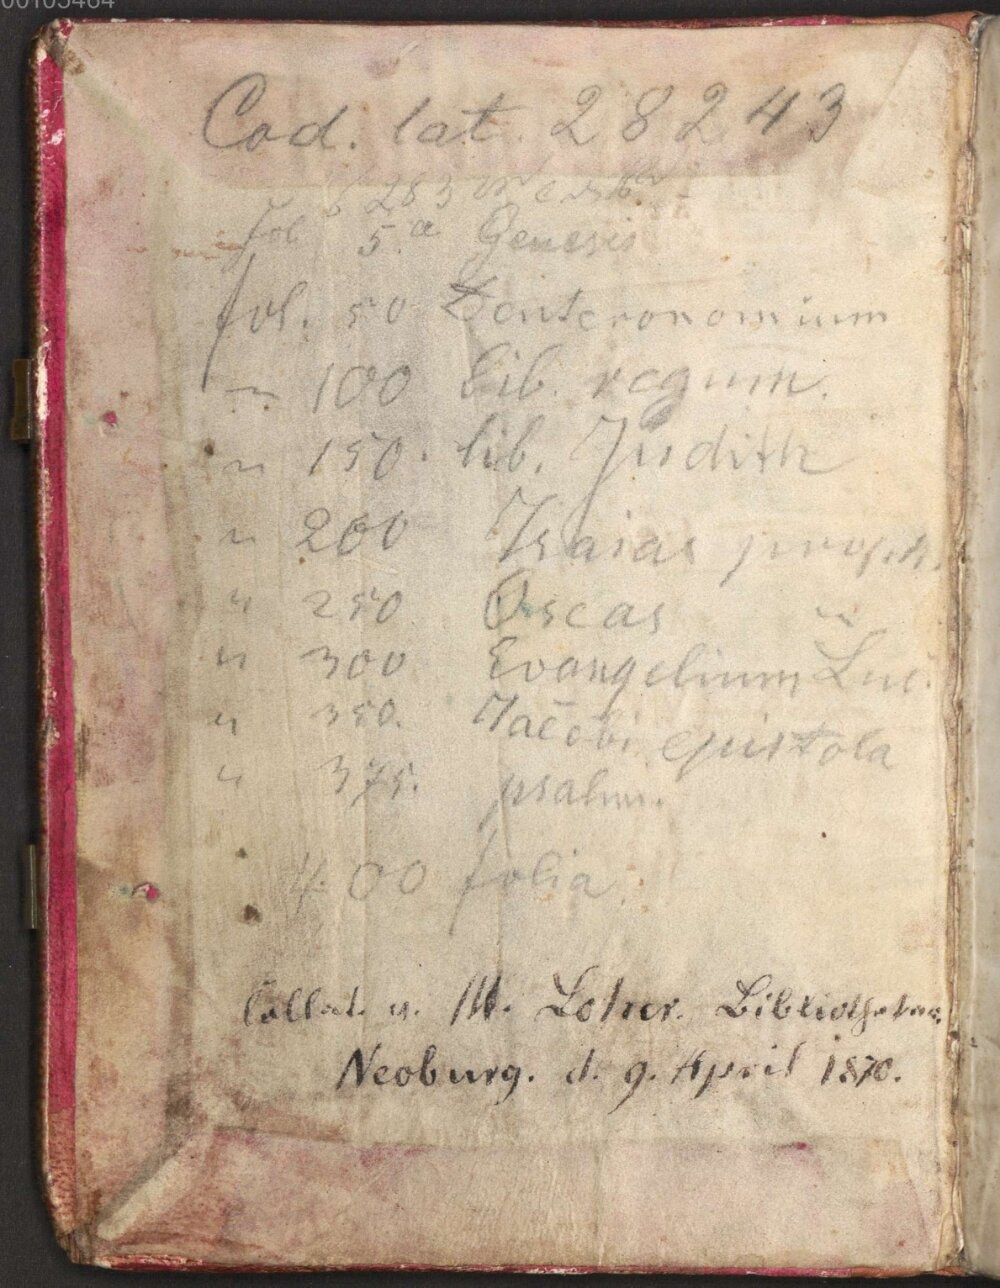 00105464
Cod. lat. 28243
fol 5.a Genesis
fol. 50 Deuteronomium
" 100 lib. regum.
" 150. lib. Judith
" 200 Isaias proph.
" 250 Oseas "
" 300 Evangelium Luc.
" 350. Jacobi epistola
" 375. psalm.
400 folia
Collat. v. M. Bibliothekar.
Neoburg. d. 9. April 1870.